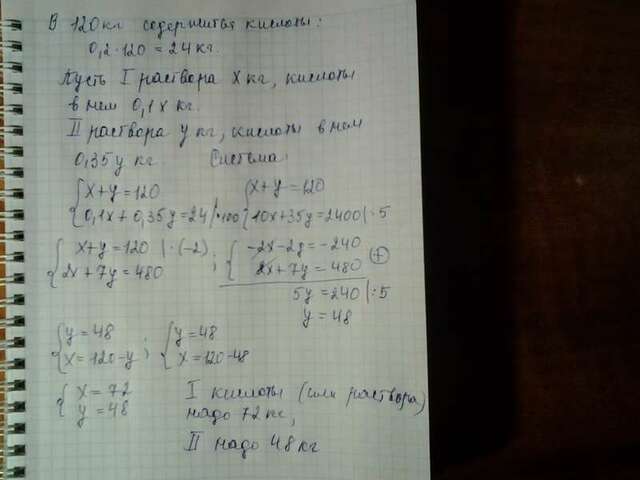 В 120 кг содержится кислоты:
0,2·120 = 24 кг.
Пусть I раствора x кг, кислоты
в нем 0,1x кг.
II раствора y кг, кислоты в нем
0,35y кг. Система
{x+y=120 {x+y=120
{0,1x+0,35y=24|·100 {10x+35y=2400|:5
{x+y=120 |·(-2) ; {-2x-2y=-240
{2x+7y=480 {2x+7y=480 (+)
5y=240|:5
y=48
{y=48 ; {y=48
{x=120-y {x=120-48
{x=72 I кислоты (или раствора)
{y=48 надо 72 кг,
II надо 48 кг